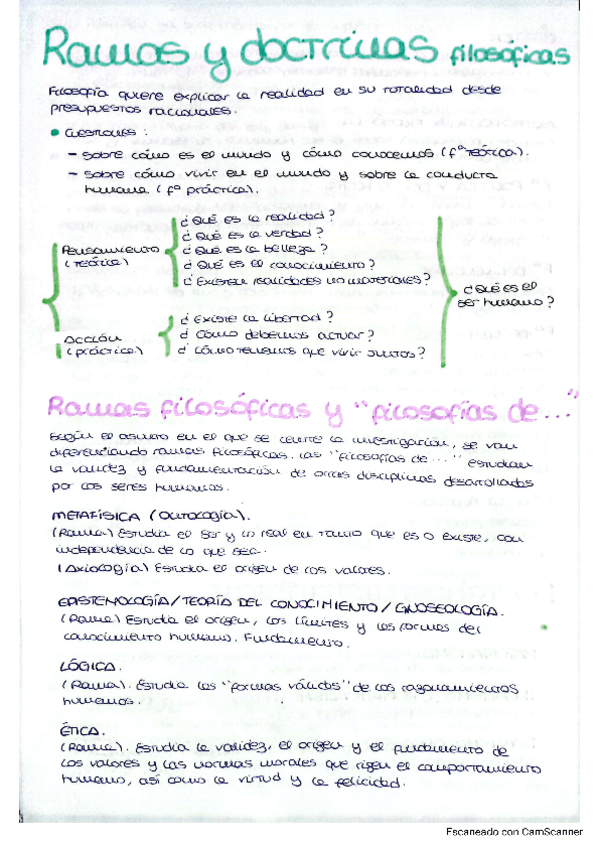 Ramas y doctrinas filosóficas
Filosofía quiere explicar la realidad en su totalidad desde
presupuestos racionales.
• Cuestiones :
– Sobre cómo es el mundo y cómo conocemos (fª teórica).
– Sobre cómo vivir en el mundo y sobre la conducta
humana (fª práctica).
Pensamiento
(teórica)
¿Qué es la realidad?
¿Qué es la verdad?
¿Qué es la belleza?
¿Qué es el conocimiento?
¿Existen realidades no materiales?
Acción
(práctica)
¿Existe la libertad?
¿Cómo debemos actuar?
¿Cómo tenemos que vivir juntos?
¿Qué es el
ser humano?
Ramas filosóficas y "filosofías de..."
Según el asunto en el que se centre la investigación, se van
diferenciando ramas filosóficas. Las "filosofías de..." estudian
la validez y fundamentación de otras disciplinas desarrolladas
por los seres humanos.
METAFÍSICA (Ontología).
(Rama) Estudia el ser y lo real en tanto que es o existe, con
independencia de lo que sea.
(Axiología) Estudia el origen de los valores.
EPISTEMOLOGÍA/TEORÍA DEL CONOCIMIENTO/GNOSEOLOGÍA.
(Rama) Estudia el origen, los límites y las formas del
conocimiento humano. Fundamento.
LÓGICA.
(Rama). Estudia las "formas válidas" de los razonamientos
humanos.
ÉTICA.
(Rama). Estudia la validez, el origen y el fundamento de
los valores y las normas morales que rigen el comportamiento
humano, así como la virtud y la felicidad.
Escaneado con CamScanner